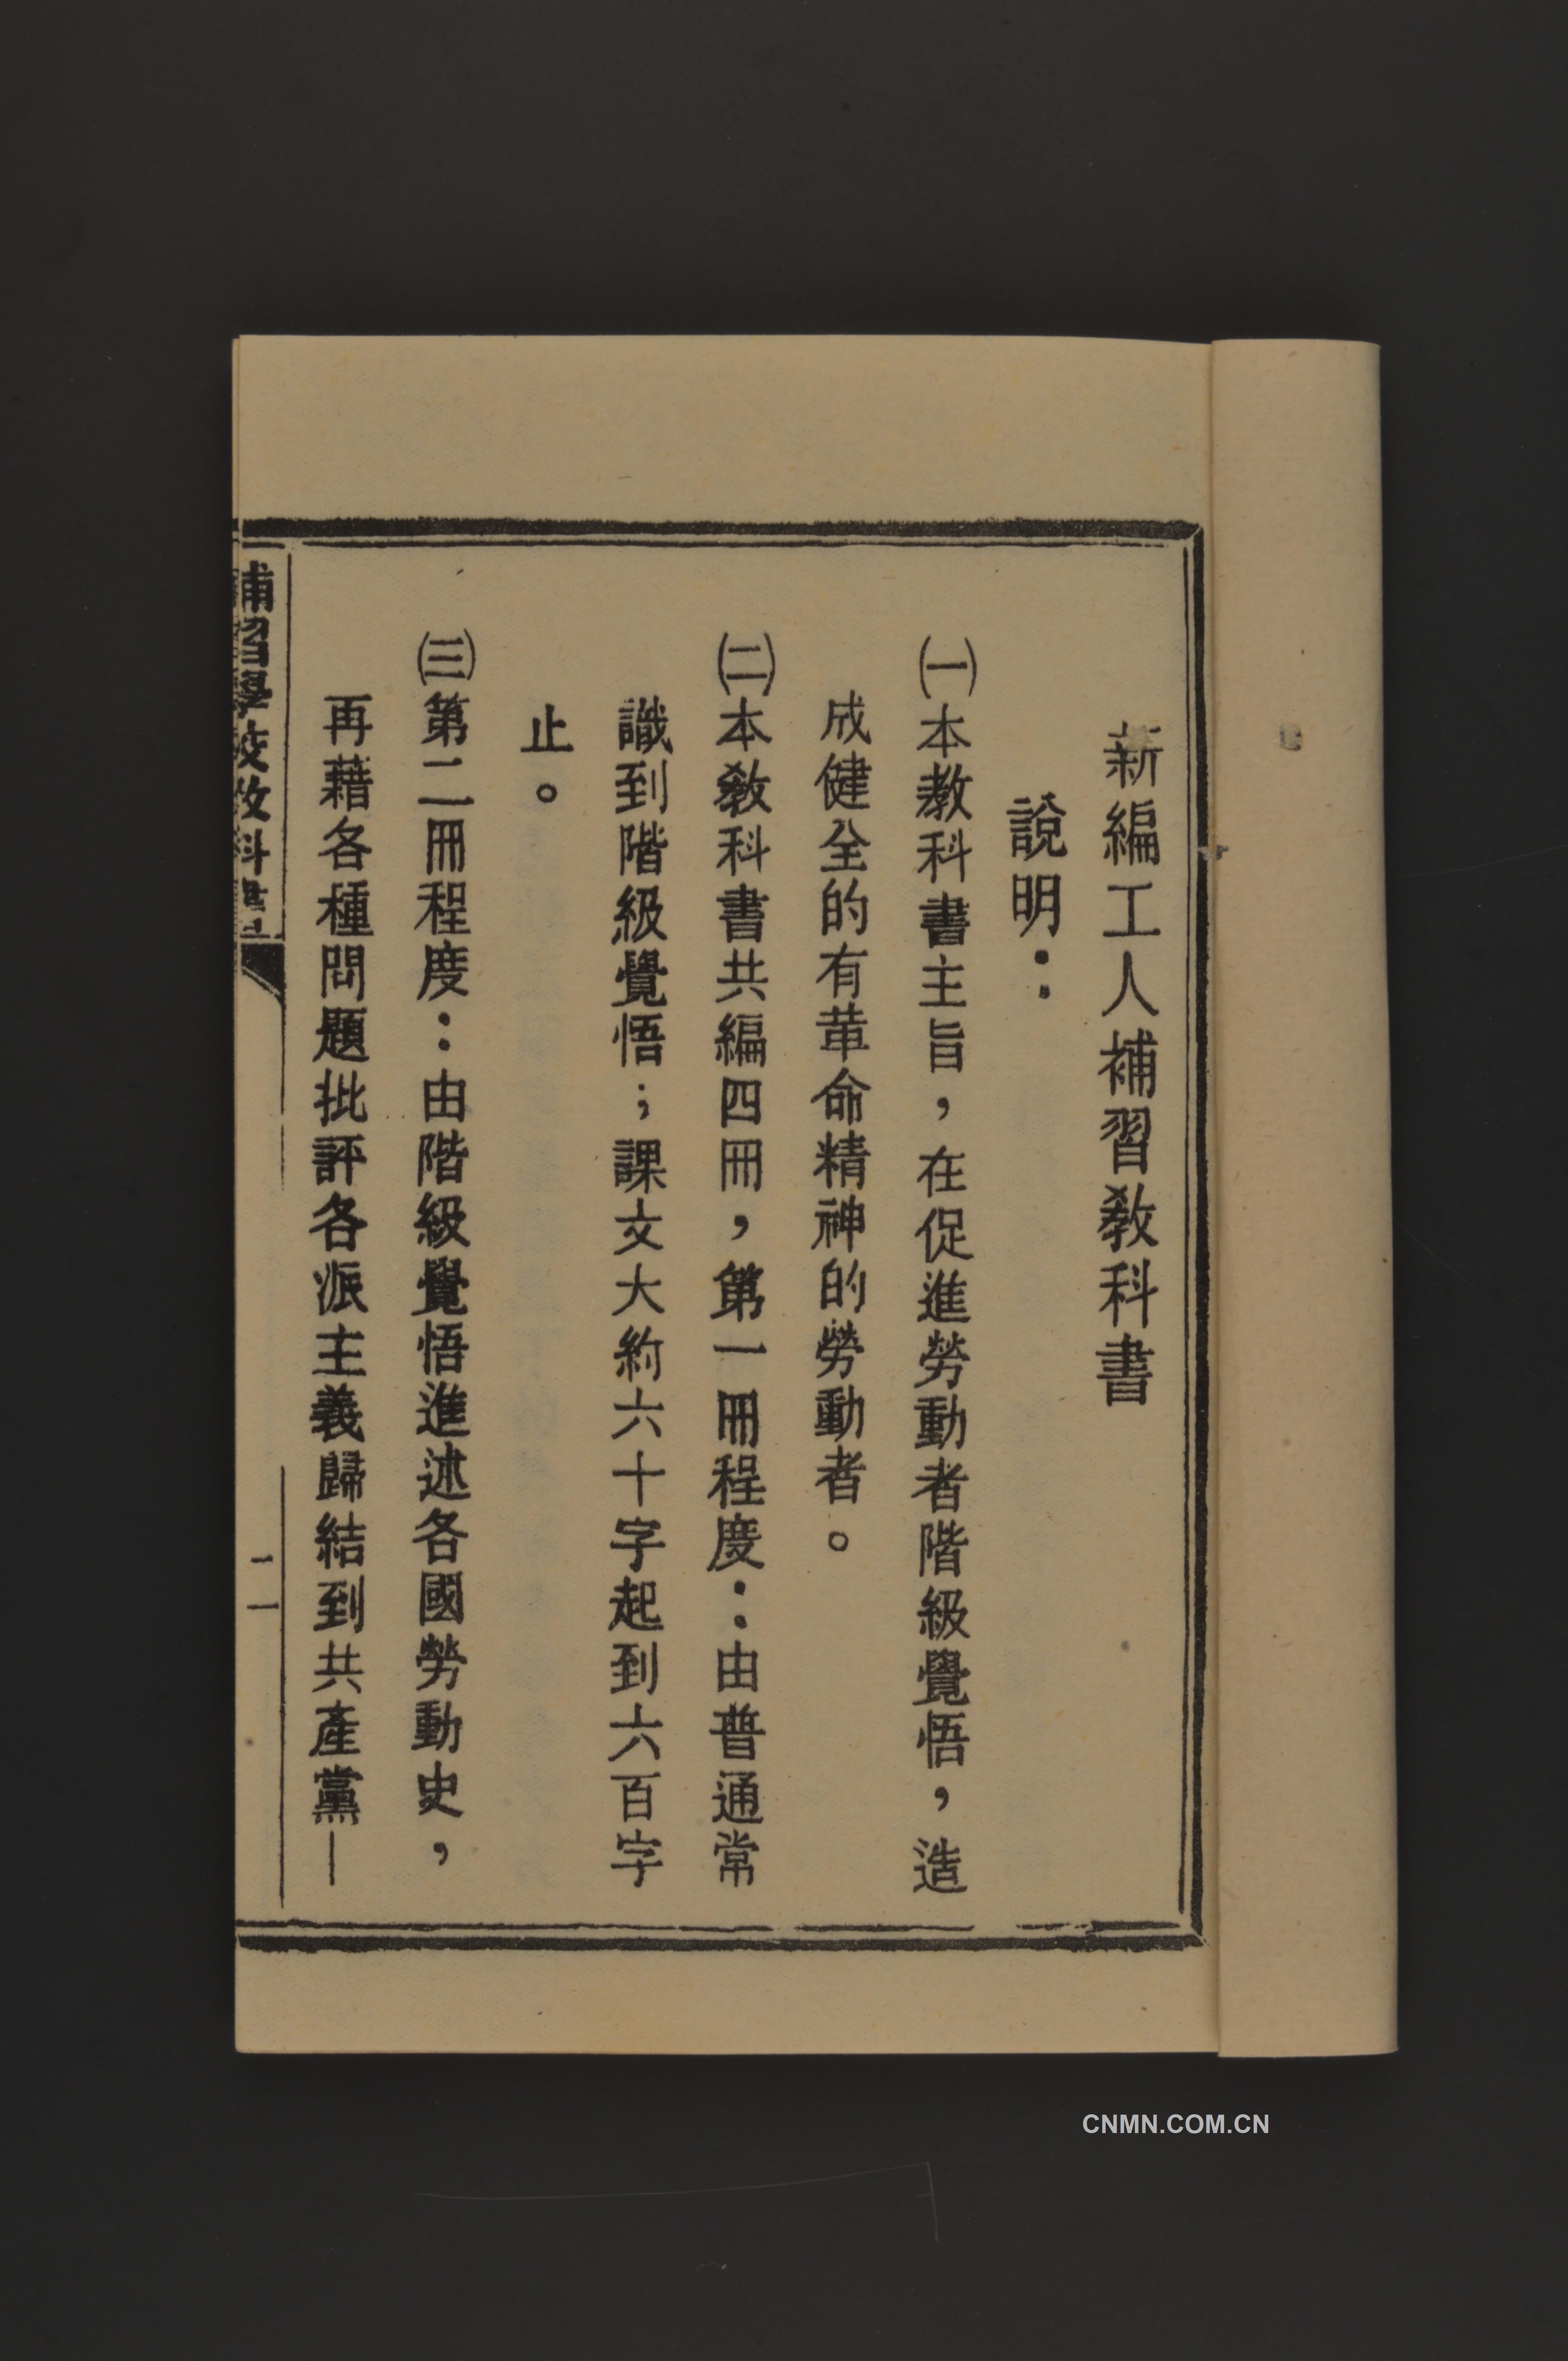 新編工人補習教科書
說明：
㈠本教科書主旨，在促進勞動者階級覺悟，造
成健全的有革命精神的勞動者。
㈡本教科書共編四冊，第一冊程度：由普通常
識到階級覺悟；課文大約六十字起到六百字
止。
㈢第二冊程度：由階級覺悟進述各國勞動史，
再藉各種問題批評各派主義歸結到共產黨—
補習學校教科書
二一
CNMN.COM.CN